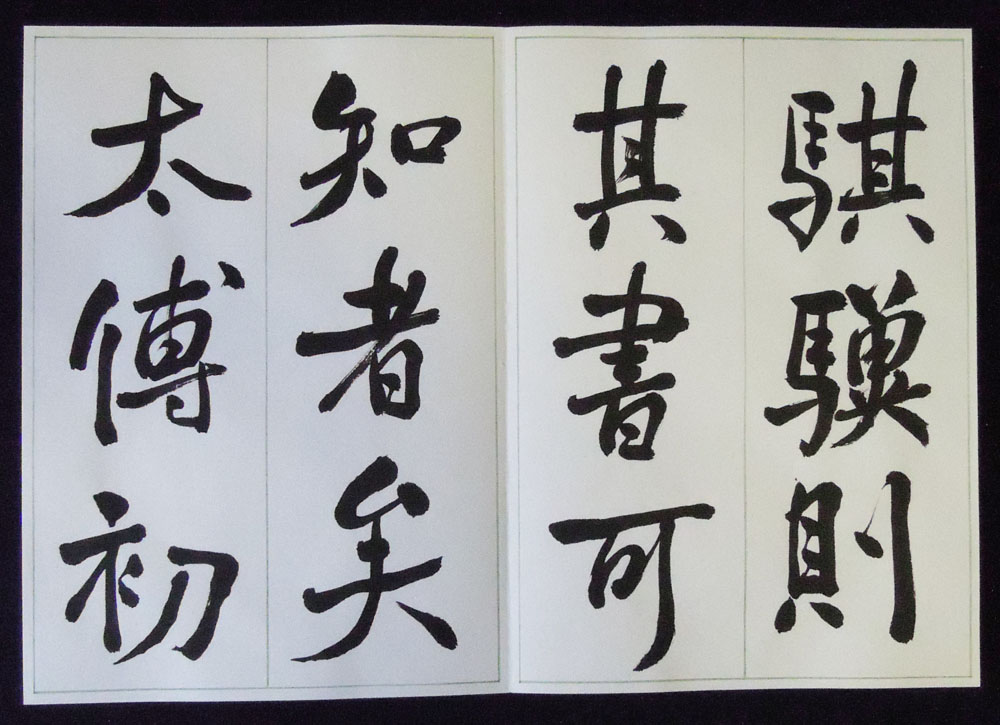 騏驥則
其書可
知者矣
太傅初